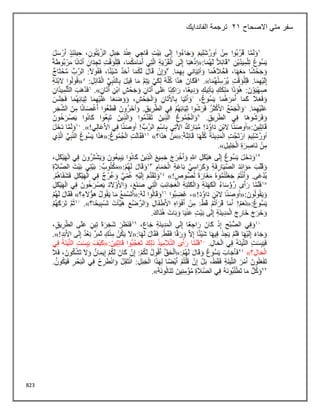 سفر متي الاصحاح ٢١   ترجمة الفاندايك
١وَلَمَّا قَرُبُوا مِنْ أُورُشَلِيمَ وَجَاءُوا إِلَى بَيْتِ فَاجِي عِنْدَ جَبَلِ الزَّيْتُونِ، حِينَئِذٍ أَرْسَلَ
يَسُوعُ تِلْمِيذَيْنِ ٢قَائِلاً لَهُمَا:«اِذْهَبَا إِلَى الْقَرْيَةِ الَّتِي أَمَامَكُمَا، فَلِلْوَقْتِ تَجِدَانِ أَتَانًا مَرْبُوطَةً
وَجَحْشًا مَعَهَا، فَحُّلاَهُمَا وَأْتِيَاني بِهِمَا. ٣وَإِنْ قَالَ لَكُمَا أَحَدٌ شَيْئًا، فَقُولاَ: الرَّبُّ مُحْتَاجٌ
إِلَيْهِمَا. فَلِلْوَقْتِ يُرْسِلُهُمَا». ٤فَكَانَ هذَا كُلُّهُ لِكَيْ يَتِمَّ مَا قِيلَ بِالنَّبِيِّ الْقَائِلِ: ٥«قُولُوا لابْنَةِ
صِهْيَوْنَ: هُوَذَا مَلِكُكِ يَأْتِيكِ وَدِيعًا، رَاكِبًا عَلَى أَتَانٍ وَجَحْشٍ ابْنِ أَتَانٍ». ٦فَذَهَبَ التِّلْمِيذَانِ
وَفَعَلاَ كَمَا أَمَرَهُمَا يَسُوعُ، ٧وَأَتَيَا بِالأَتَانِ وَالْجَحْشِ، وَوَضَعَا عَلَيْهِمَا ثِيَابَهُمَا فَجَلَسَ
عَلَيْهِمَا. ٨وَالْجَمْعُ الأَكْثَرُ فَرَشُوا ثِيَابَهُمْ فِي الطَّرِيقِ. وَآخَرُونَ قَطَعُوا أَغْصَانًا مِنَ الشَّجَرِ
وَفَرَشُوهَا فِي الطَّرِيقِ. ٩وَالْجُمُوعُ الَّذِينَ تَقَدَّمُوا وَالَّذِينَ تَبِعُوا كَانُوا يَصْرَخُونَ
قَائِلِينَ:«أُوصَنَّا لابْنِ دَاوُدَ! مُبَارَكٌ الآتِي بِاسْمِ الرَّبِّ! أُوصَنَّا فِي الأَعَالِي!». ١٠وَلَمَّا دَخَلَ
أُورُشَلِيمَ ارْتَجَّتِ الْمَدِينَةُ كُلُّهَا قَائِلَةً:«مَنْ هذَا؟» ١١فَقَالَتِ الْجُمُوعُ:«هذَا يَسُوعُ النَّبِيُّ الَّذِي
مِنْ نَاصِرَةِ الْجَلِيلِ».
١٢وَدَخَلَ يَسُوعُ إِلَى هَيْكَلِ اللهِ وَأَخْرَجَ جَمِيعَ الَّذِينَ كَانُوا يَبِيعُونَ وَيَشْتَرُونَ فِي الْهَيْكَلِ،
وَقَلَبَ مَوَائِدَ الصَّيَارِفَةِ وَكَرَاسِيَّ بَاعَةِ الْحَمَامِ ١٣وَقَالَ لَهُمْ:«مَكْتُوبٌ: بَيْتِي بَيْتَ الصَّلاَةِ
يُدْعَى. وَأَنْتُمْ جَعَلْتُمُوهُ مَغَارَةَ لُصُوصٍ!» ١٤وَتَقَدَّمَ إِلَيْهِ عُمْيٌ وَعُرْجٌ فِي الْهَيْكَلِ فَشَفَاهُمْ.
١٥فَلَمَّا رَأَى رُؤَسَاءُ الْكَهَنَةِ وَالْكَتَبَةِ الْعَجَائِبَ الَّتِي صَنَعَ، وَالأَوْلاَدَ يَصْرَخُونَ فِي الْهَيْكَلِ
وَيَقُولُونَ:«أُوصَنَّا لابْنِ دَاوُدَ!»، غَضِبُوا ١٦وَقَالُوا لَهُ:«أَتَسْمَعُ مَا يَقُولُ هؤُلاَءِ؟» فَقَالَ لَهُمْ
يَسُوعُ:«نَعَمْ! أَمَا قَرَأْتُمْ قَطُّ: مِنْ أَفْوَاهِ الأَطْفَالِ وَالرُّضَّعِ هَيَّأْتَ تَسْبِيحًا؟». ١٧ثُمَّ تَرَكَهُمْ
وَخَرَجَ خَارِجَ الْمَدِينَةِ إِلَى بَيْتِ عَنْيَا وَبَاتَ هُنَاكَ.
١٨وَفِي الصُّبْحِ إِذْ كَانَ رَاجِعًا إِلَى الْمَدِينَةِ جَاعَ، ١٩فَنَظَرَ شَجَرَةَ تِينٍ عَلَى الطَّرِيقِ،
وَجَاءَ إِلَيْهَا فَلَمْ يَجِدْ فِيهَا شَيْئًا إِلاَّ وَرَقًا فَقَطْ. فَقَالَ لَهَا:«لاَ يَكُنْ مِنْكِ ثَمَرٌ بَعْدُ إِلَى الأَبَدِ!».
فَيَبِسَتِ التِّينَةُ فِي الْحَالِ. ٢٠فَلَمَّا رَأَى التَّلاَمِيذُ ذلِكَ تَعَجَّبُوا قَائِلِينَ:«كَيْفَ يَبِسَتِ التِّينَةُ فِي
الْحَالِ؟» ٢١فَأَجَابَ يَسُوعُ وَقَالَ لَهُمْ:«اَلْحَقَّ أَقُولُ لَكُمْ: إِنْ كَانَ لَكُمْ إِيمَانٌ وَلاَ تَشُكُّونَ، فَلاَ
تَفْعَلُونَ أَمْرَ التِّينَةِ فَقَطْ، بَلْ إِنْ قُلْتُمْ أَيْضًا لِهذَا الْجَبَلِ: انْتَقِلْ وَانْطَرِحْ فِي الْبَحْرِ فَيَكُونُ.
٢٢وَكُلُّ مَا تَطْلُبُونَهُ فِي الصَّلاَةِ مُؤْمِنِينَ تَنَالُونَهُ».
823